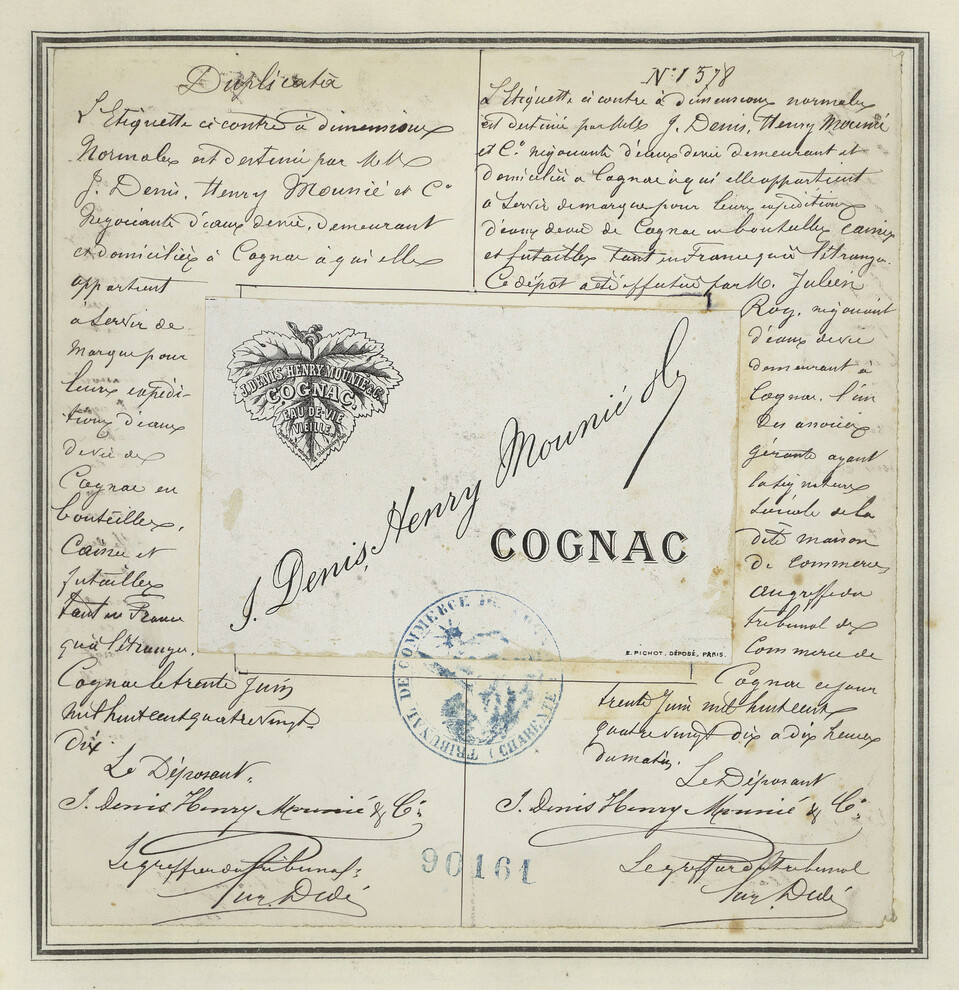 Duplicata
L'Etiquette ci contre à dimensions
Normales est destiné par MM
J. Denis, Henry Mounié et Cº
Négociants d'eaux devie, demeurant
et domiciliés à Cognac à qui elle
appartient
à servir de
marque pour
leurs expédi-
tions d'eaux
devie de
Cognac en
bouteilles,
Caisses et
futailles
tant en France
qu'à l'étranger.
Cognac le trente Juin
mil huit cent quatre vingt
dix.
Le Déposant,
J. Denis Henry Mounié & Cº
Le greffier du Tribunal
Didé
Nº 1378
L'Etiquette ci contre à dimensions normales
est destiné par MM J. Denis, Henry Mounié
et Cº négociants d'eaux devie demeurant et
domiciliés à Cognac à qui elle appartient
à servir de marque pour leurs expéditions
d'eaux devie de Cognac en bouteilles caisses
et futailles tant en France qu'à l'étranger.
Ce dépôt a été effectué par M. Julien
Roy, négociant
d'eaux devie
demeurant à
Cognac, l'un
des associés
gérants ayant
la signature
sociale de la
dite maison
de commerce
au greffe du
tribunal de
Commerce de
Cognac ce jour
trente Juin mil huit cent
quatre vingt dix à dix heures
du matin.
Le Déposant
J. Denis Henry Mounié & Cº
Le greffier du tribunal
Didé
J. DENIS, HENRY MOUNIE & C.
COGNAC.
EAU-DE-VIE
VIEILLE
J. Denis, Henry Mounié & Cº
COGNAC
E. PICHOT, DÉPOSÉ, PARIS.
TRIBUNAL DE COMMERCE DE
(CHARENTE)
90161